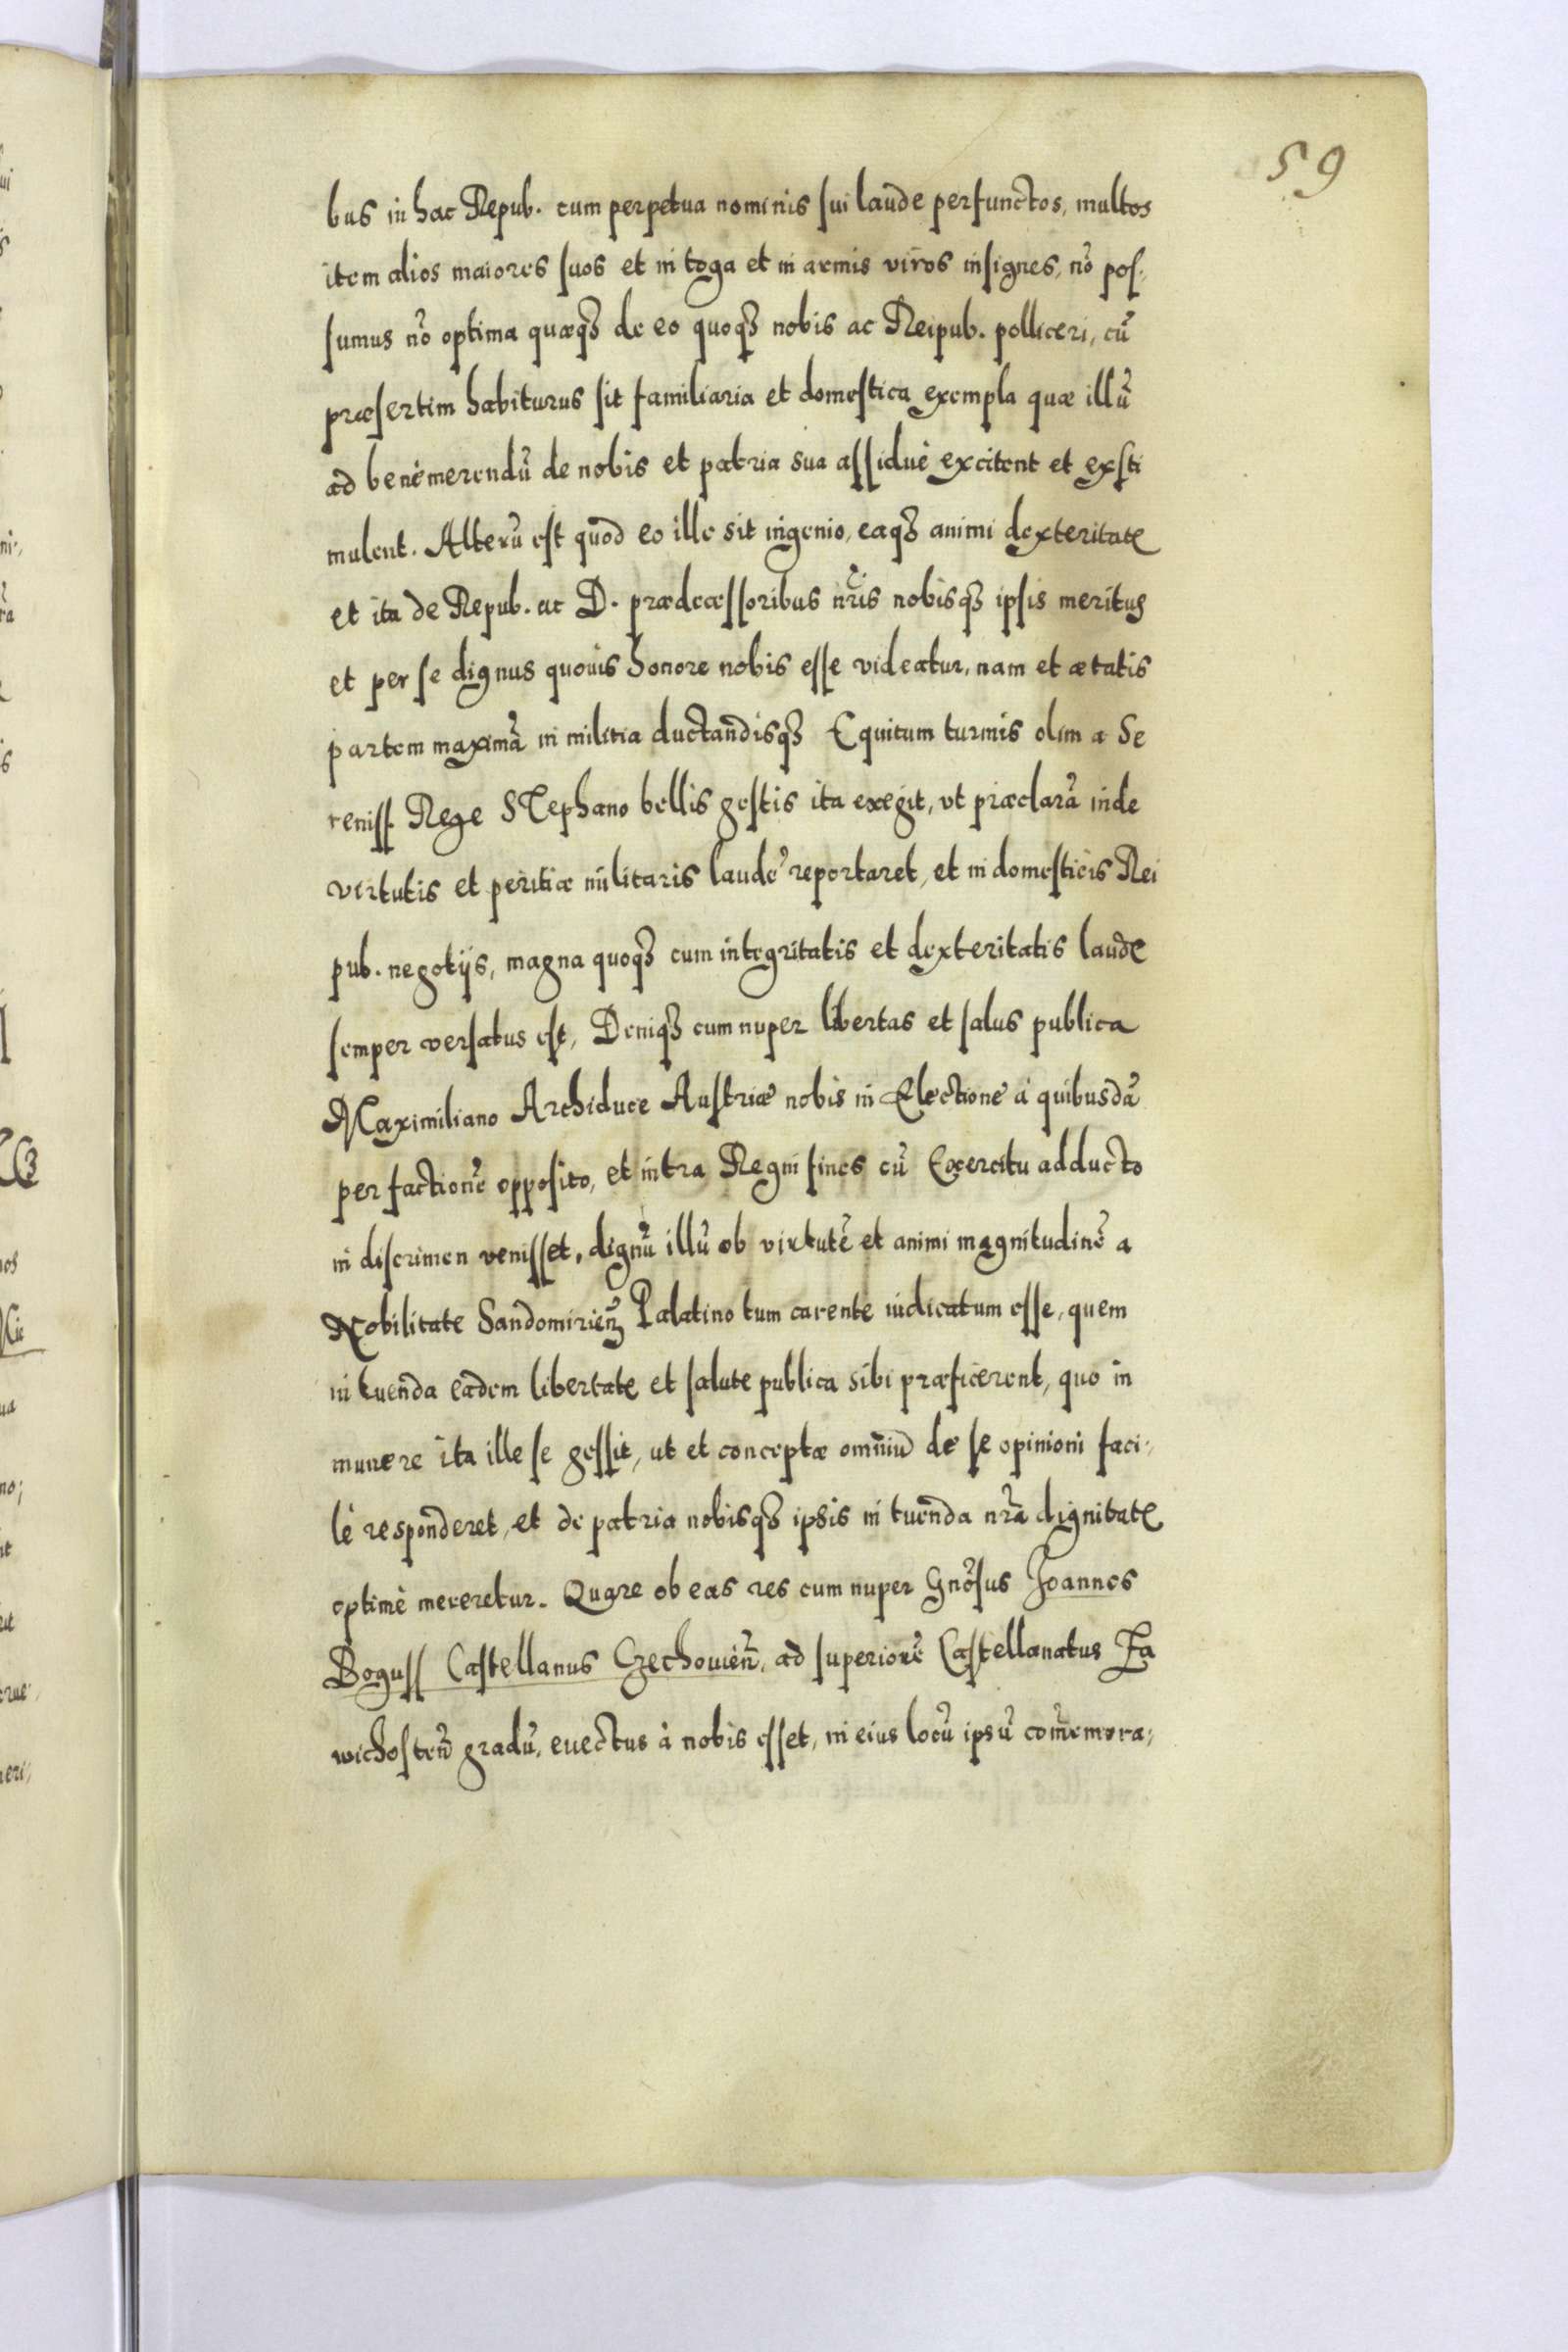 59
bus in hac Repub. cum perpetua nominis sui laude perfunctos, multos
item alios maiores suos et in toga et in armis viros insignes, nō pos-
sumus nō optima quæqȝ de eo quoqȝ nobis ac Reipub. polliceri, cū
præsertim habiturus sit familiaria et domestica exempla quæ illū
ad benèmerendū de nobis et patria sua assiduè excitent et exsti
mulent. Alterū est quod eo ille sit ingenio, eaqȝ animi dexteritate
et ita de Repub. ac D. prædecæssoribus nr̃is nobisqȝ ipsis meritus
et per se dignus quouis honore nobis esse videatur, nam et ætatis
partem maximā in militia ductandisqȝ Equitum turmis olim a Se
reniss. Rege Stephano bellis gestis ita exegit, vt præclarā inde
virtutis et peritiæ militaris laudē reportaret, et in domesticis Rei
pub. negotijs, magna quoqȝ cum integritatis et dexteritatis laude
semper versatus est, Deniqȝ cum nuper libertas et salus publica
Maximiliano Archiduce Austriæ nobis in Electione à quibusdā
per factionē opposito, et intra Regni fines cū Exercitu adducto
in discrimen venisset, dignū illū ob virtutē et animi magnitudinē a
Nobilitate Sandomirieñ Palatino tum carente iudicatum esse, quem
in tuenda eadem libertate et salute publica sibi præficerent, quo in
munere ita ille se gessit, ut et conceptæ omniū de se opinioni faci-
lè responderet, et de patria nobisqȝ ipsis in tuenda nr̃a dignitate
optimè mereretur. Quare ob eas res cum nuper Gnõsus Joannes
Boguss Castellanus Czechouieñ, ad superiorē Castellanatus Za
wichosteñ gradū, euectus à nobis esset, in eius locū ipsū com̃emora-